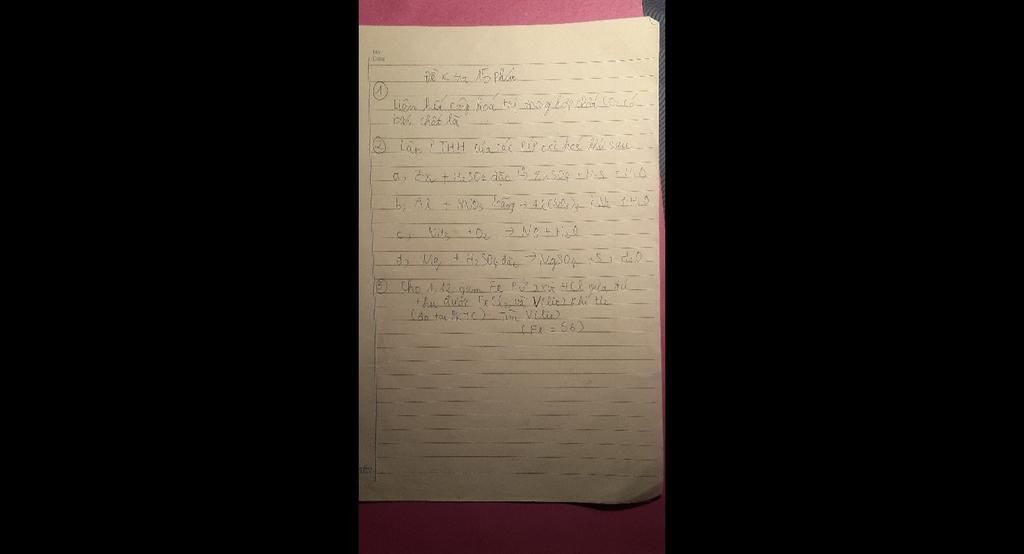 Đề 15 Phút
①
Liên kết cộng hoá trị trong hợp chất có
bản chất là
② Lập PTHH của các PƯ oxi hoá khử sau
a, Zn + H₂SO₄ đặc → ZnSO₄ + H₂S + H₂O
b, Al + HNO₃ loãng → Al(NO₃)₃ + H₂O
c, NH₃ + O₂ → NO + H₂O
d, Mg + H₂SO₄ đặc → MgSO₄ + S + H₂O
③ Cho 1,12 gam Fe PƯ với HCl
thu được FeCl₂ và V(lít) khí H₂
(đo tại đktc) Tìm V(lít)
(Fe = 56)